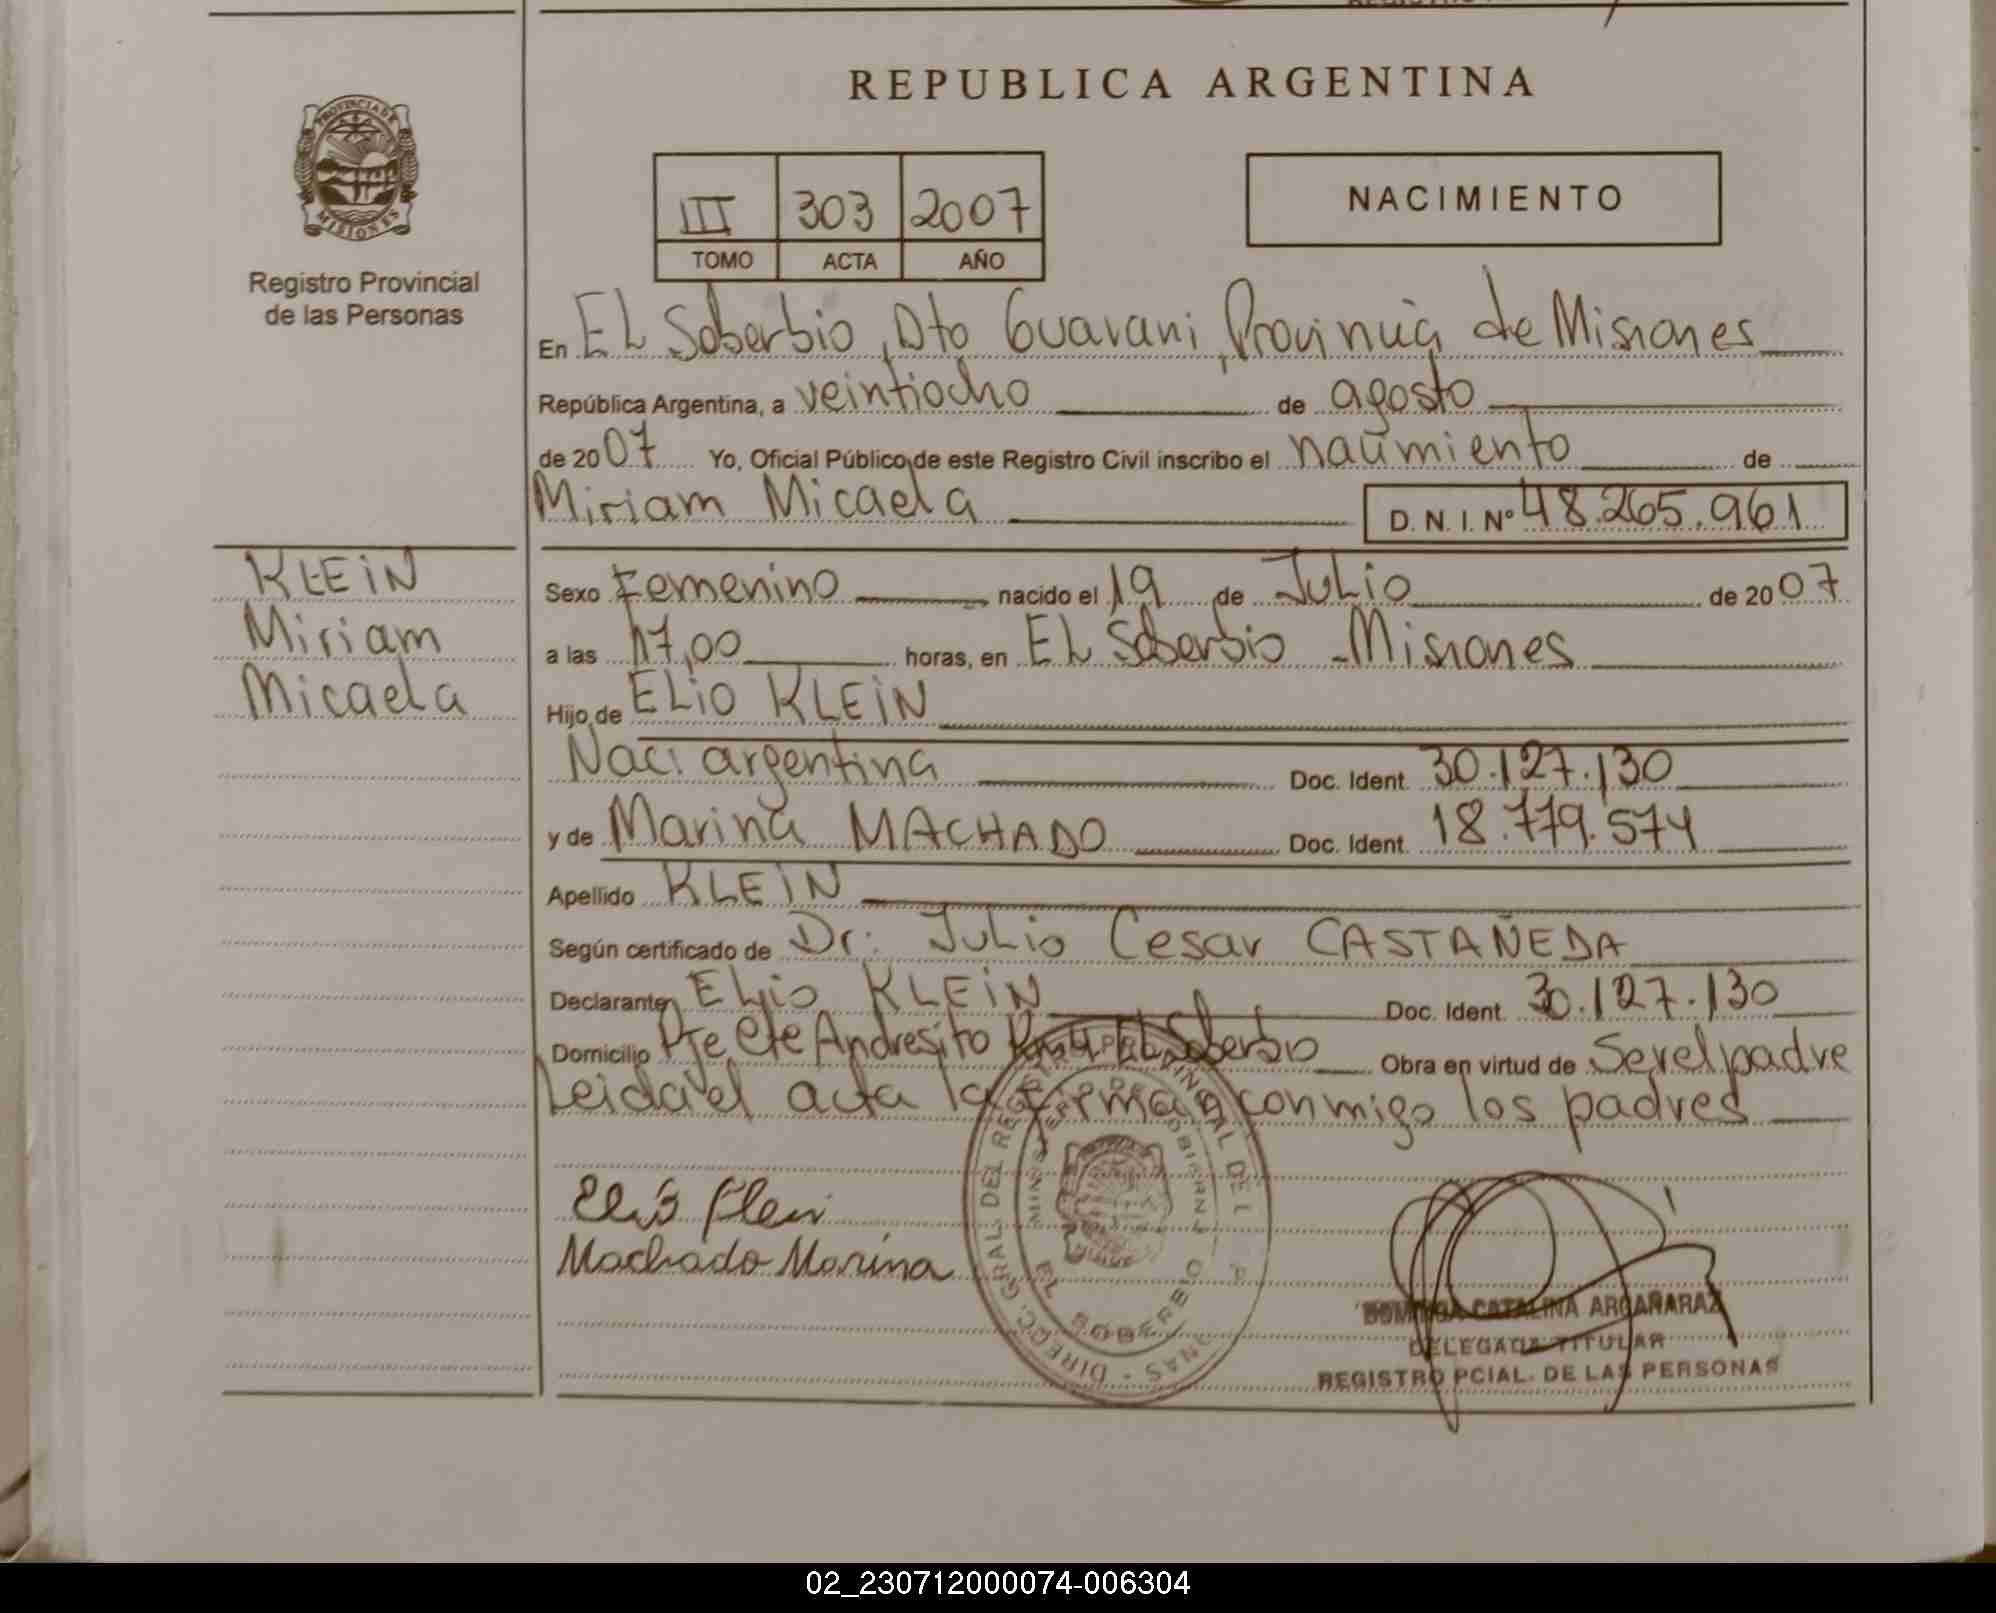 REPUBLICA ARGENTINA
PROVINCIA DE
MISIONES
Registro Provincial
de las Personas
III 303 2007
TOMO ACTA AÑO
NACIMIENTO
En EL Soberbio, Dto Guarani, Provincia de Misiones
República Argentina, a veintiocho de agosto
de 2007 Yo, Oficial Público de este Registro Civil inscribo el nacimiento de
Miriam Micaela D. N. I. Nº 48.265.961
KLEIN
Miriam
Micaela
Sexo Femenino nacido el 19 de Julio de 2007
a las 17,00 horas, en EL Soberbio - Misiones
Hijo de ELio KLEiN
Naci argentina Doc. Ident. 30.127.130
y de Marina MACHADO Doc. Ident. 18.779.574
Apellido KLEiN
Según certificado de Dr. Julio Cesar CASTAÑEDA
Declarante ELio KLEiN Doc. Ident. 30.127.130
Domicilio Pje Cte Andresito EL Soberbio Obra en virtud de Ser el padre
Leida el acta la firman conmigo los padres
Elio Klein
Machado Marina
DIRECC. GRAL. DEL REG. PROVINCIAL DE L P NAS -
MINIST DE GOBIERNO
EL SOBERBIO
DOMINGA CATALINA ARGAÑARAZ
DELEGADA TITULAR
REGISTRO PCIAL. DE LAS PERSONAS
02_230712000074-006304